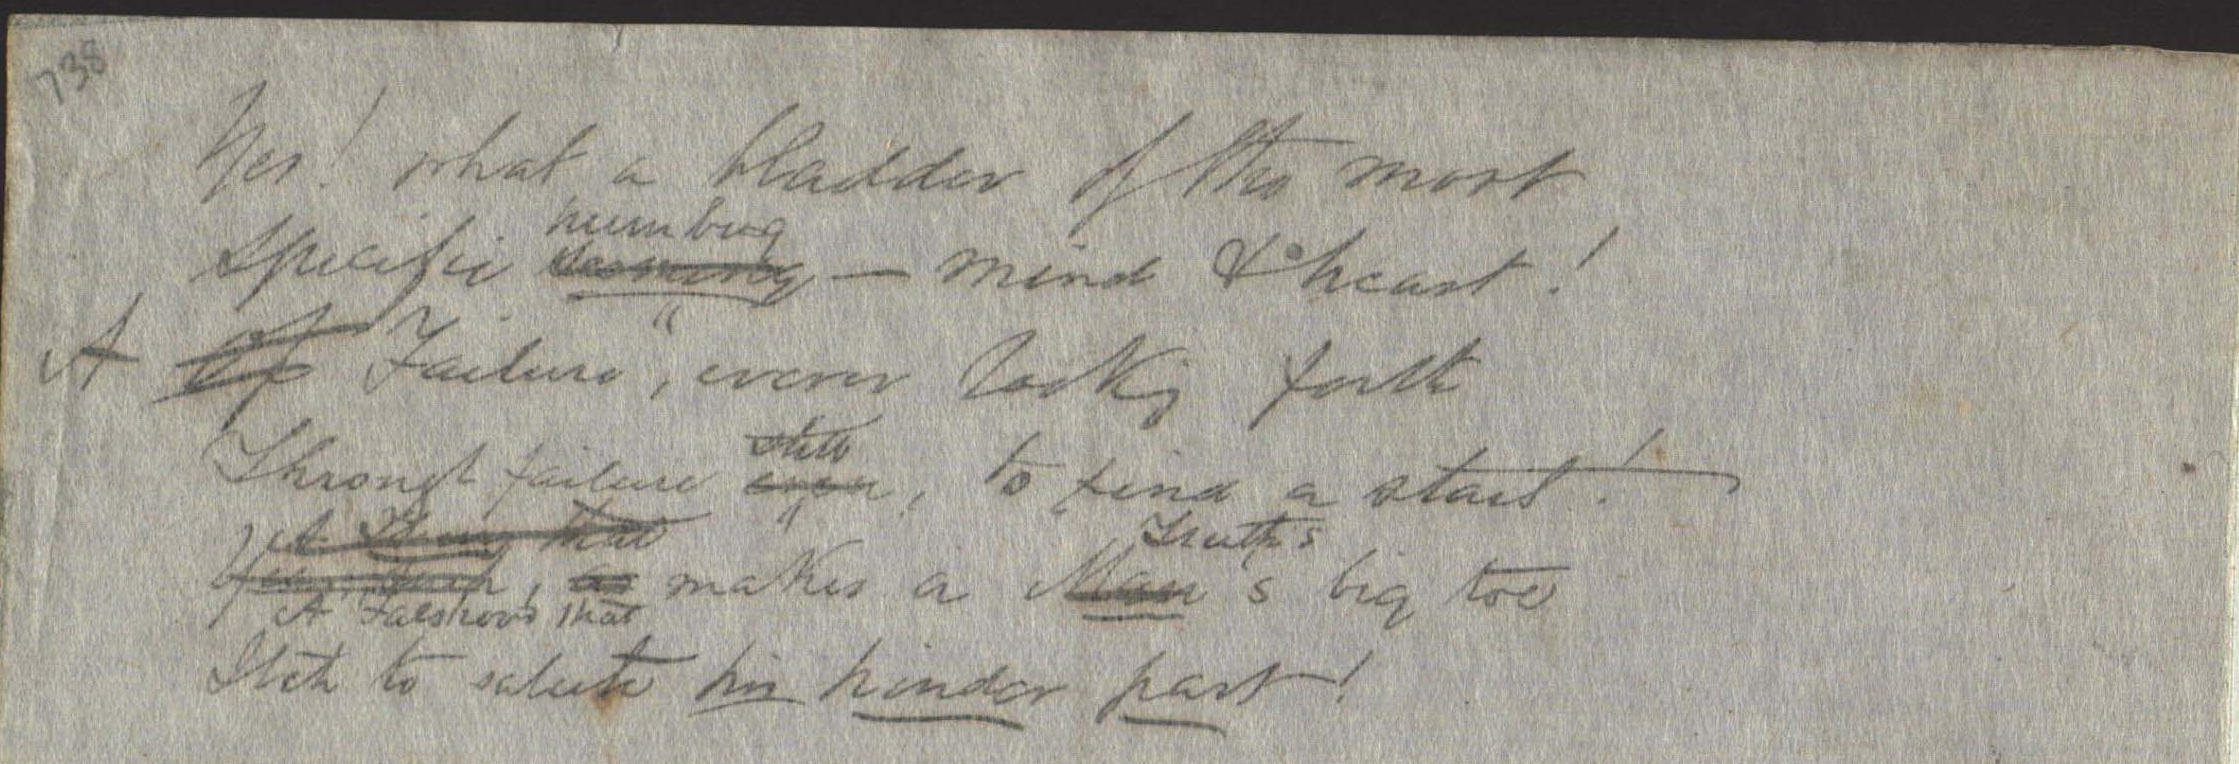 738
Yes! what a bladder of the most
humbug
specific seeming — mind & heart!
of
A Of Failure, ever looking forth
still
Through failure ever, to find a start!
A Thing that Truth's
makes a Man's big toe
A Falshood that
Itch to salute his hinder part!